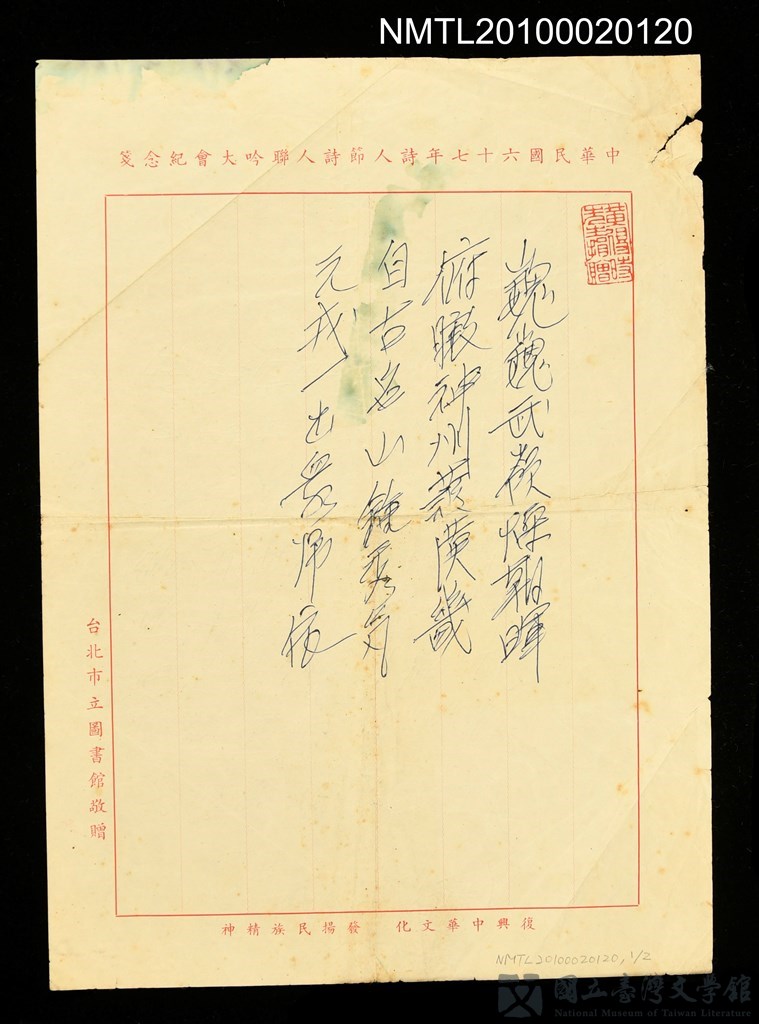 NMTL20100020120
中華民國六十七年詩人節詩人聯吟大會紀念箋
黃得時
先生捐贈
巍巍武嶺燦朝暉
俯瞰神州護漢畿
自古名山鍾秀氣
元戎一出眾歸依
台北市立圖書館敬贈
復興中華文化 發揚民族精神
NMTL20100020120, 1/2
國立臺灣文學館
National Museum of Taiwan Literature